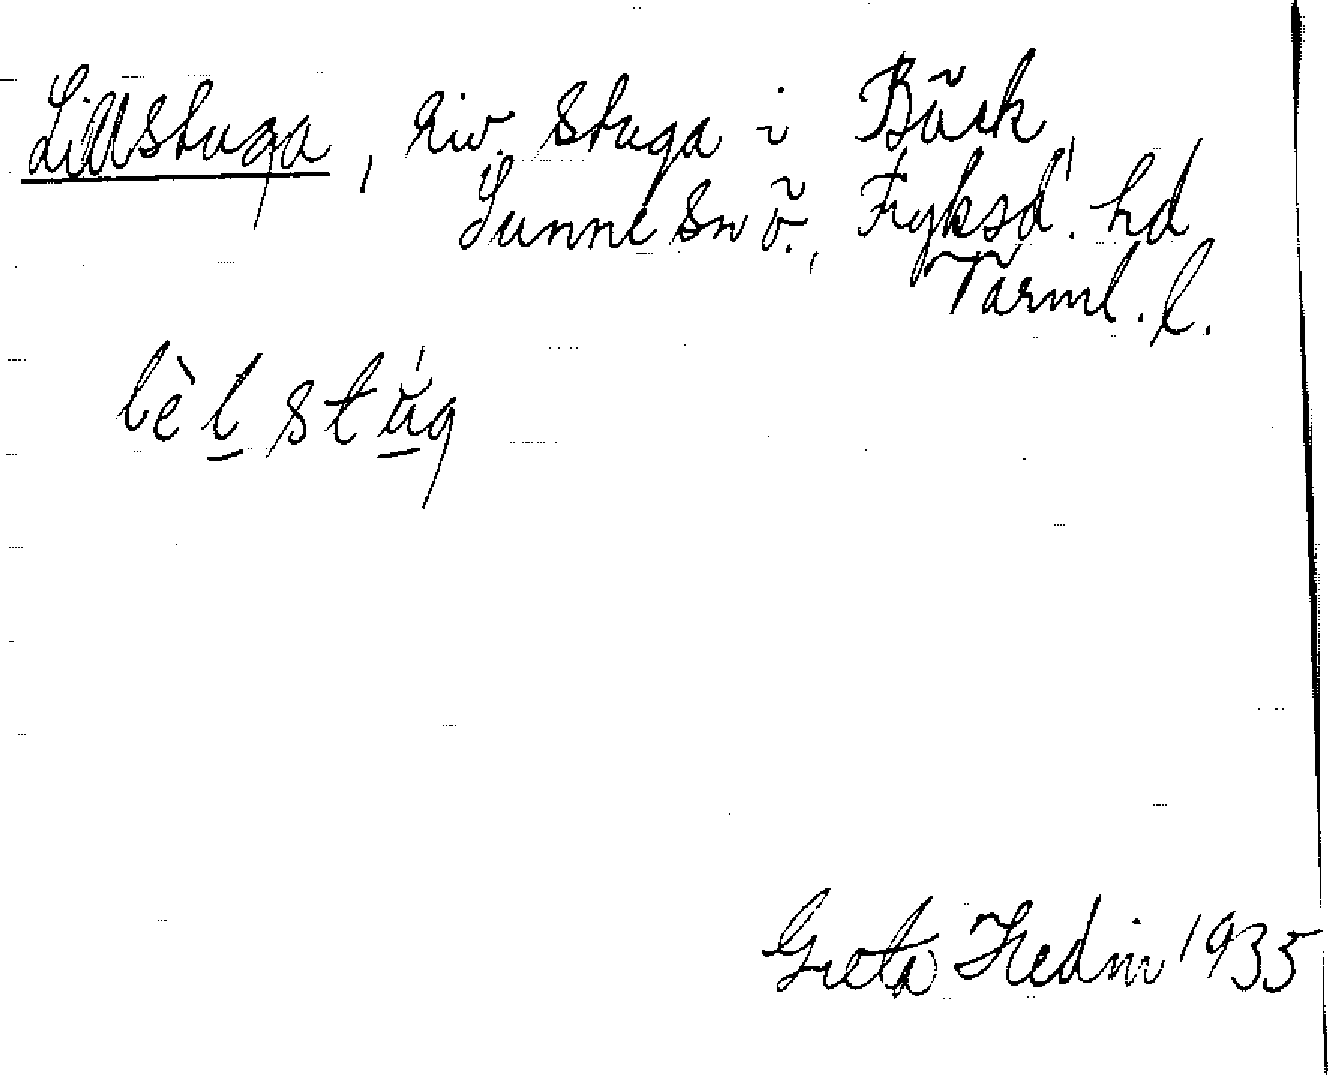 Lillstuga, riv. stuga i Bäck,
Sunne sn ö., Fryksd. hd
Värml. l.
lèl stúg
Greta Hedin 1935